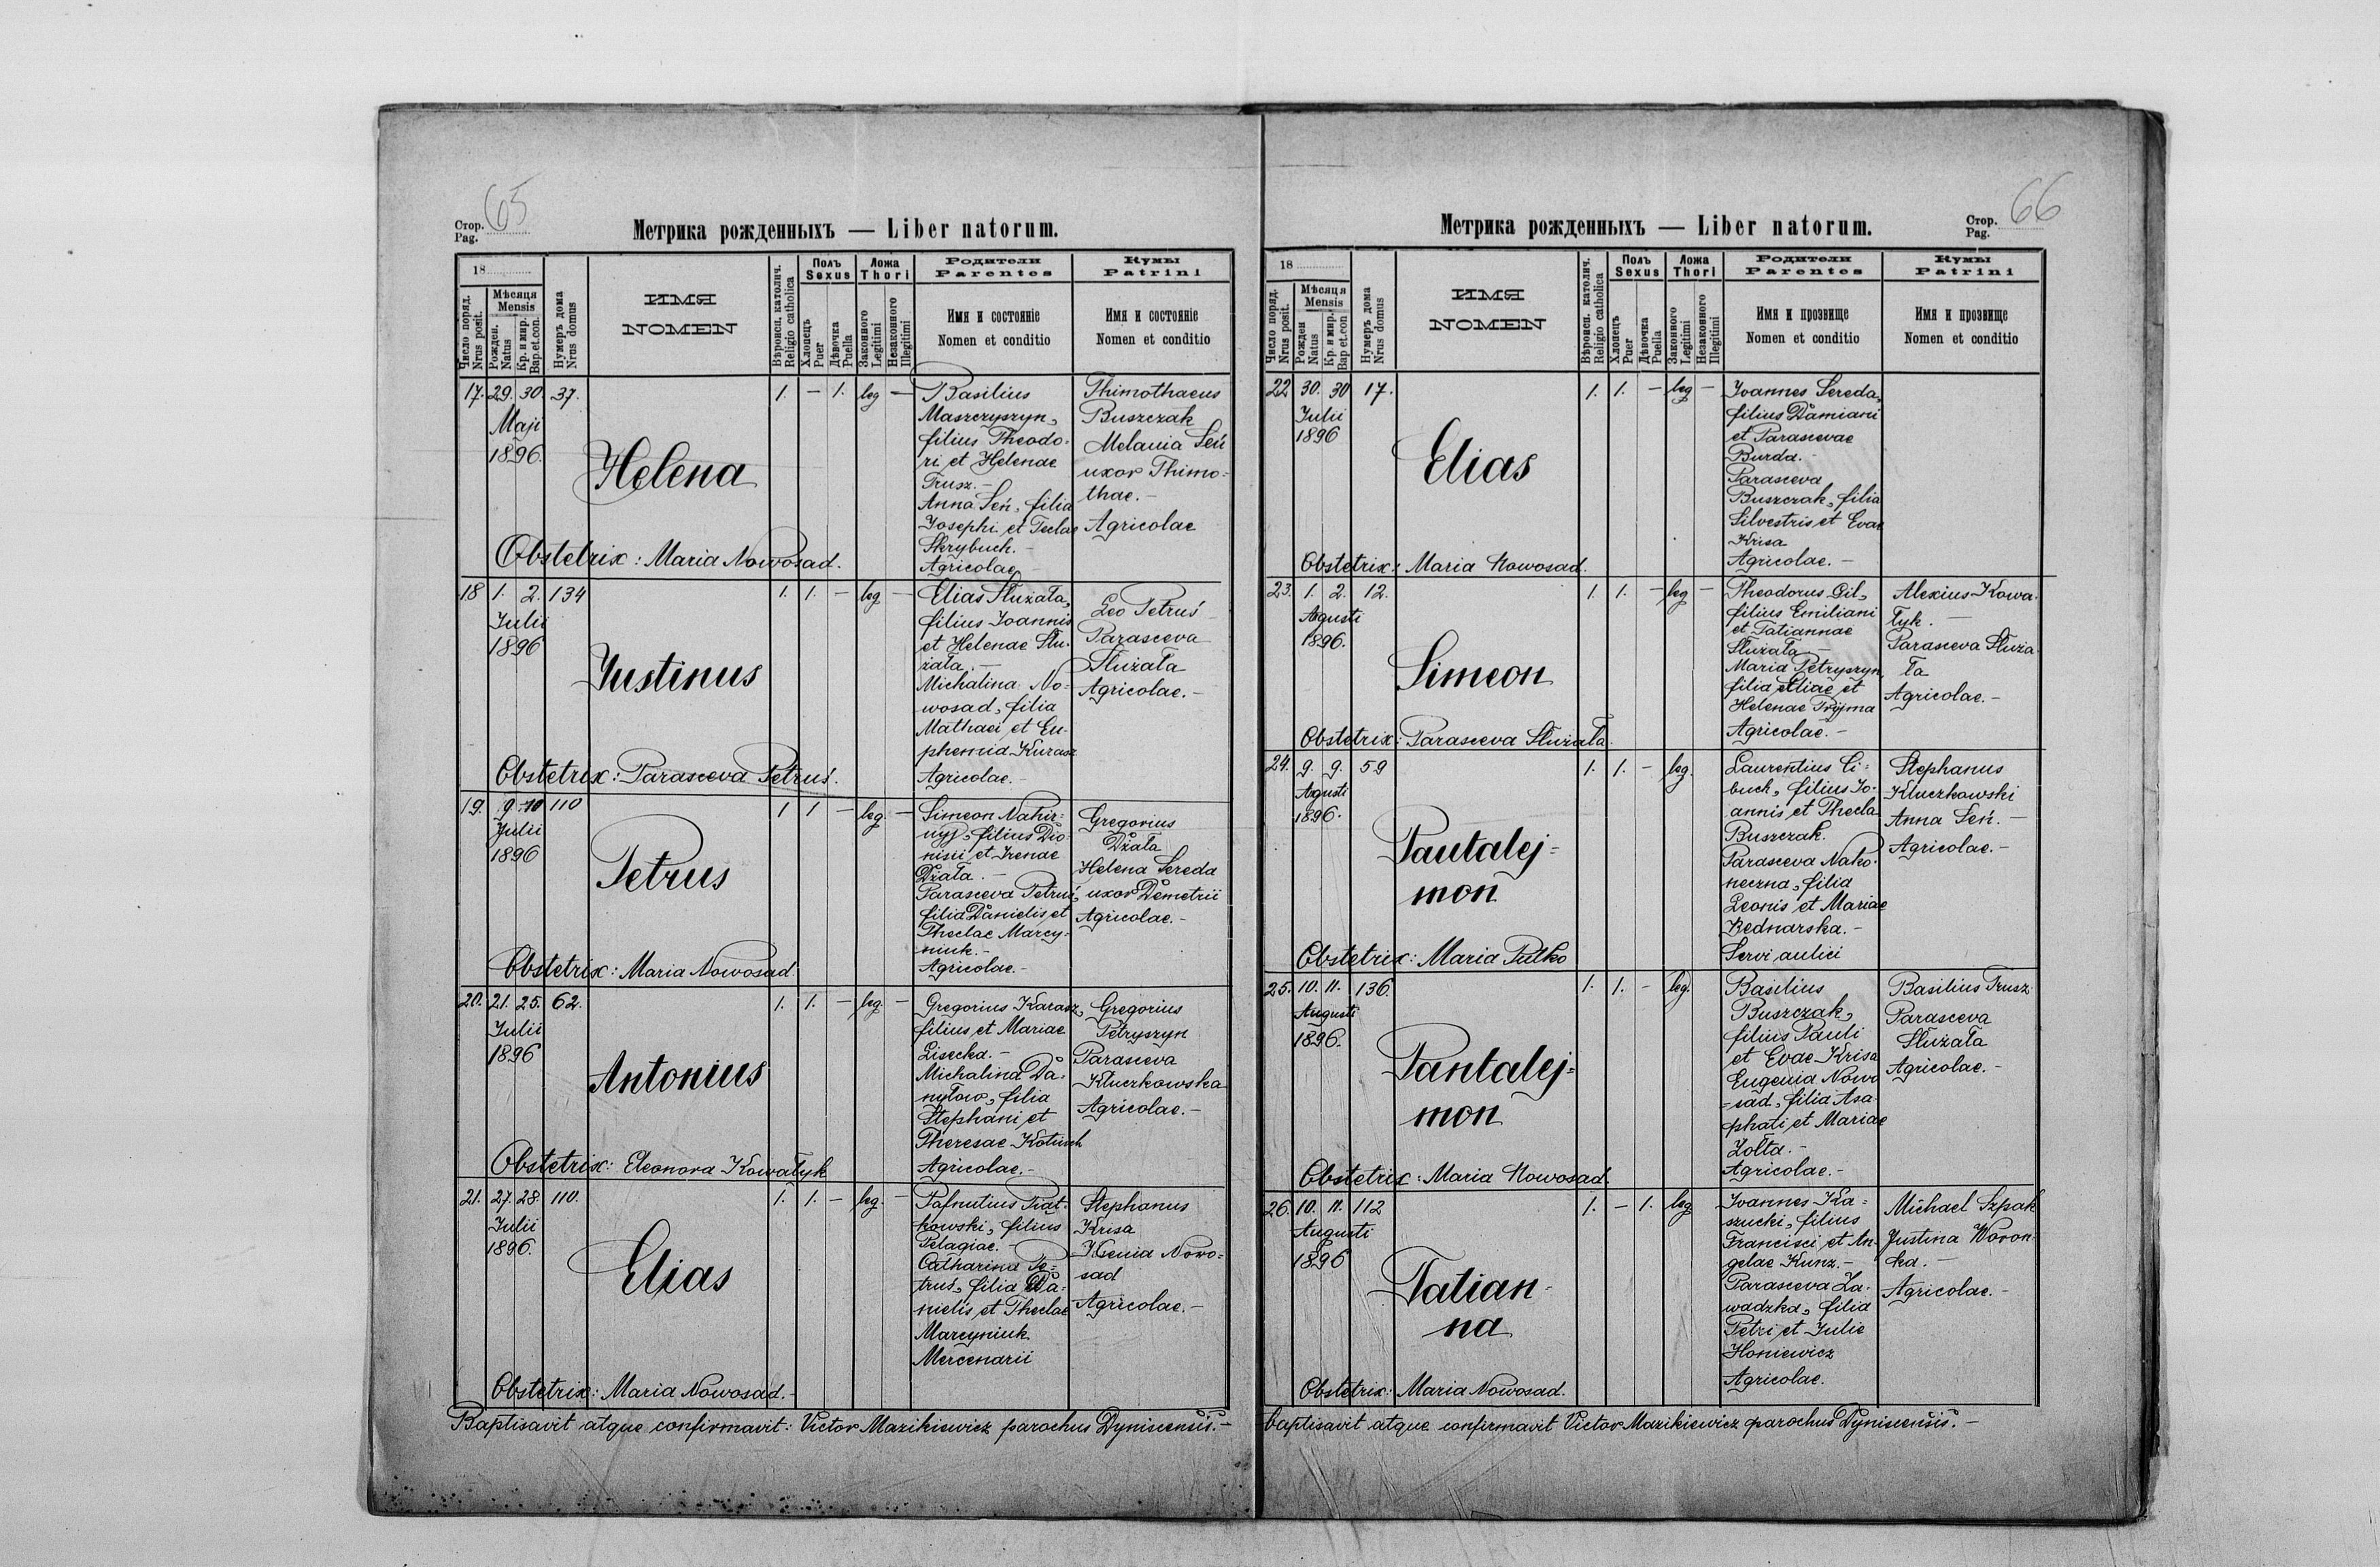 Стор.
Pag. 65
Метрика рожденныхъ — Liber natorum.
18
Число поряд.
Nrus posit.
Мѣсяця
Mensis
Рожден.
Natus
Кр. и мир.
Bap. et. con.
Нумеръ дома
Nrus domus
ИМЯ
NOMEN
Вѣроисп. католич.
Religio catholica
Полъ
Sexus
Хлопецъ
Puer
Дѣвочка
Puella
Ложа
Thori
Законного
Legitimi
Незаконного
Illegitimi
Родители
Parentes
Имя и состояніе
Nomen et conditio
Кумы
Patrini
Имя и состояніе
Nomen et conditio
17. 29. 30 37.
Maji
1896.
Helena
1. — 1. leg —
Basilius
Maszczyszyn,
filius Theodo-
ri et Helenae
Trusz.—
Anna Seń, filia
Josephi et Teclae
Skrybuch.—
Agricolae
Thimothaeus
Buszczak
Melania Seń
uxor Thimo-
thae.—
Agricolae
Obstetrix: Maria Nowosad.
18 1. 2. 134
Julii
1896
Justinus
1. 1. — leg —
Elias Służała,
filius Joannis
et Helenae Słu-
żała.—
Michalina No-
wosad, filia
Mathaei et Eu-
phemia Kurasz
Agricolae.—
Leo Petruś
Parasceva
Służała
Agricolae.—
Obstetrix: Parasceva Petruś.
19. 9. 10 110
Julii
1896
Petrus
1 1 — leg. —
Simeon Nahir-
nyj, filius Dio-
nisii et Irenae
Dżała.—
Parasceva Petruś,
filia Danielis et
Theclae Marcy-
niuk.—
Agricolae.—
Gregorius
Dżała
Helena Sereda
uxor Demetrii
Agricolae.—
Obstetrix: Maria Nowosad
20. 21. 25. 62.
Julii
1896
Antonius
1. 1. — leg. —
Gregorius Karasz,
filius et Mariae
Lisecka.—
Michalina Da-
nyłow, filia
Stephani et
Theresae
Agricolae.—
Gregorius
Petryszyn
Parasceva
Kluczkowska
Agricolae.—
Obstetrix: Eleonora Kowałyk
21. 27. 28. 110.
Julii
1896.
Elias
1. 1. — leg. —
Pafnutius Piąt-
kowski, filius
Pelagiae.—
Catharina Pe-
truś, filia Da-
nielis et Theclae
Marcyniuk
Mercenarii
Stephanus
Krisa
Ksenia Nowo-
sad
Agricolae.—
Obstetrix: Maria Nowosad.—
Baptisavit atque confirmavit: Victor Mazikiewicz parochus Dyniscensis.—
Метрика рожденныхъ — Liber natorum.
Стор.
Pag. 66
18
Число поряд.
Nrus posit.
Мѣсяця
Mensis
Рожден
Natus
Кр. и мир.
Bap. et. con
Нумеръ дома
Nrus domus
ИМЯ
NOMEN
Вѣроисп. католич.
Religio catholica
Полъ
Sexus
Хлопецъ
Puer
Дѣвочка
Puella
Ложа
Thori
Законного
Legitimi
Незаконного
Illegitimi
Родители
Parentes
Имя и прозвище
Nomen et conditio
Кумы
Patrini
Имя и прозвище
Nomen et conditio
22 30. 30 17.
Julii
1896
Elias
1. 1. — leg —
Joannes Sereda,
filius Damiani
et Parascevae
Burda.—
Parasceva
Buszczak, filia
Silvestris et Evae
Krisa
Agricolae.—
Obstetrix: Maria Nowosad.
23. 1. 2. 12.
Agusti
1896.
Simeon
1. 1. — leg —
Theodorus Dil,
filius Emiliani
et Tatiannae
Służała—
Maria Petryszyn,
filia Eliae et
Helenae Pryjma
Agricolae.—
Alexius Kowa-
łyk.—
Parasceva Służa-
ła
Agricolae.—
Obstetrix: Parasceva Służała.
24. 9. 9. 59
Agusti
1896.
Pantalej-
mon
1. 1. — leg.
Laurentius Ci-
buch, filius Jo-
annis et Thecla
Buszczak.
Parasceva Nako-
neczna, filia
Leonis et Mariae
Bednarska.—
Servi aulici
Stephanus
Kluczkowski
Anna Seń.—
Agricolae.—
Obstetrix: Maria Putko
25. 10. 11. 136.
Augusti
1896.
Pantalej-
mon
1. 1. — leg.
Basilius
Buszczak,
filius Pauli
et Evae Krisa
Eugenia Nowo
-sad, filia Asa
phati et Mariae
Żołta.—
Agricolae.—
Basilius Trusz
Parasceva
Służała
Agricolae.—
Obstetrix: Maria Nowosad.
26. 10. 11. 112
Augusti
1896
Tatian-
na
1. — 1. leg
Joannes Ka-
szucki, filius
Francisci et An-
gelae Kunz.—
Parasceva Za-
wadzka, filia
Petri et Julie
Honiewicz
Agricolae.
Michael Szpak
Justina Woron-
ka.—
Agricolae.—
Obstetrix: Maria Nowosad.
Baptisavit atque confirmavit Victor Mazikiewicz parochus Dyniscensis.—